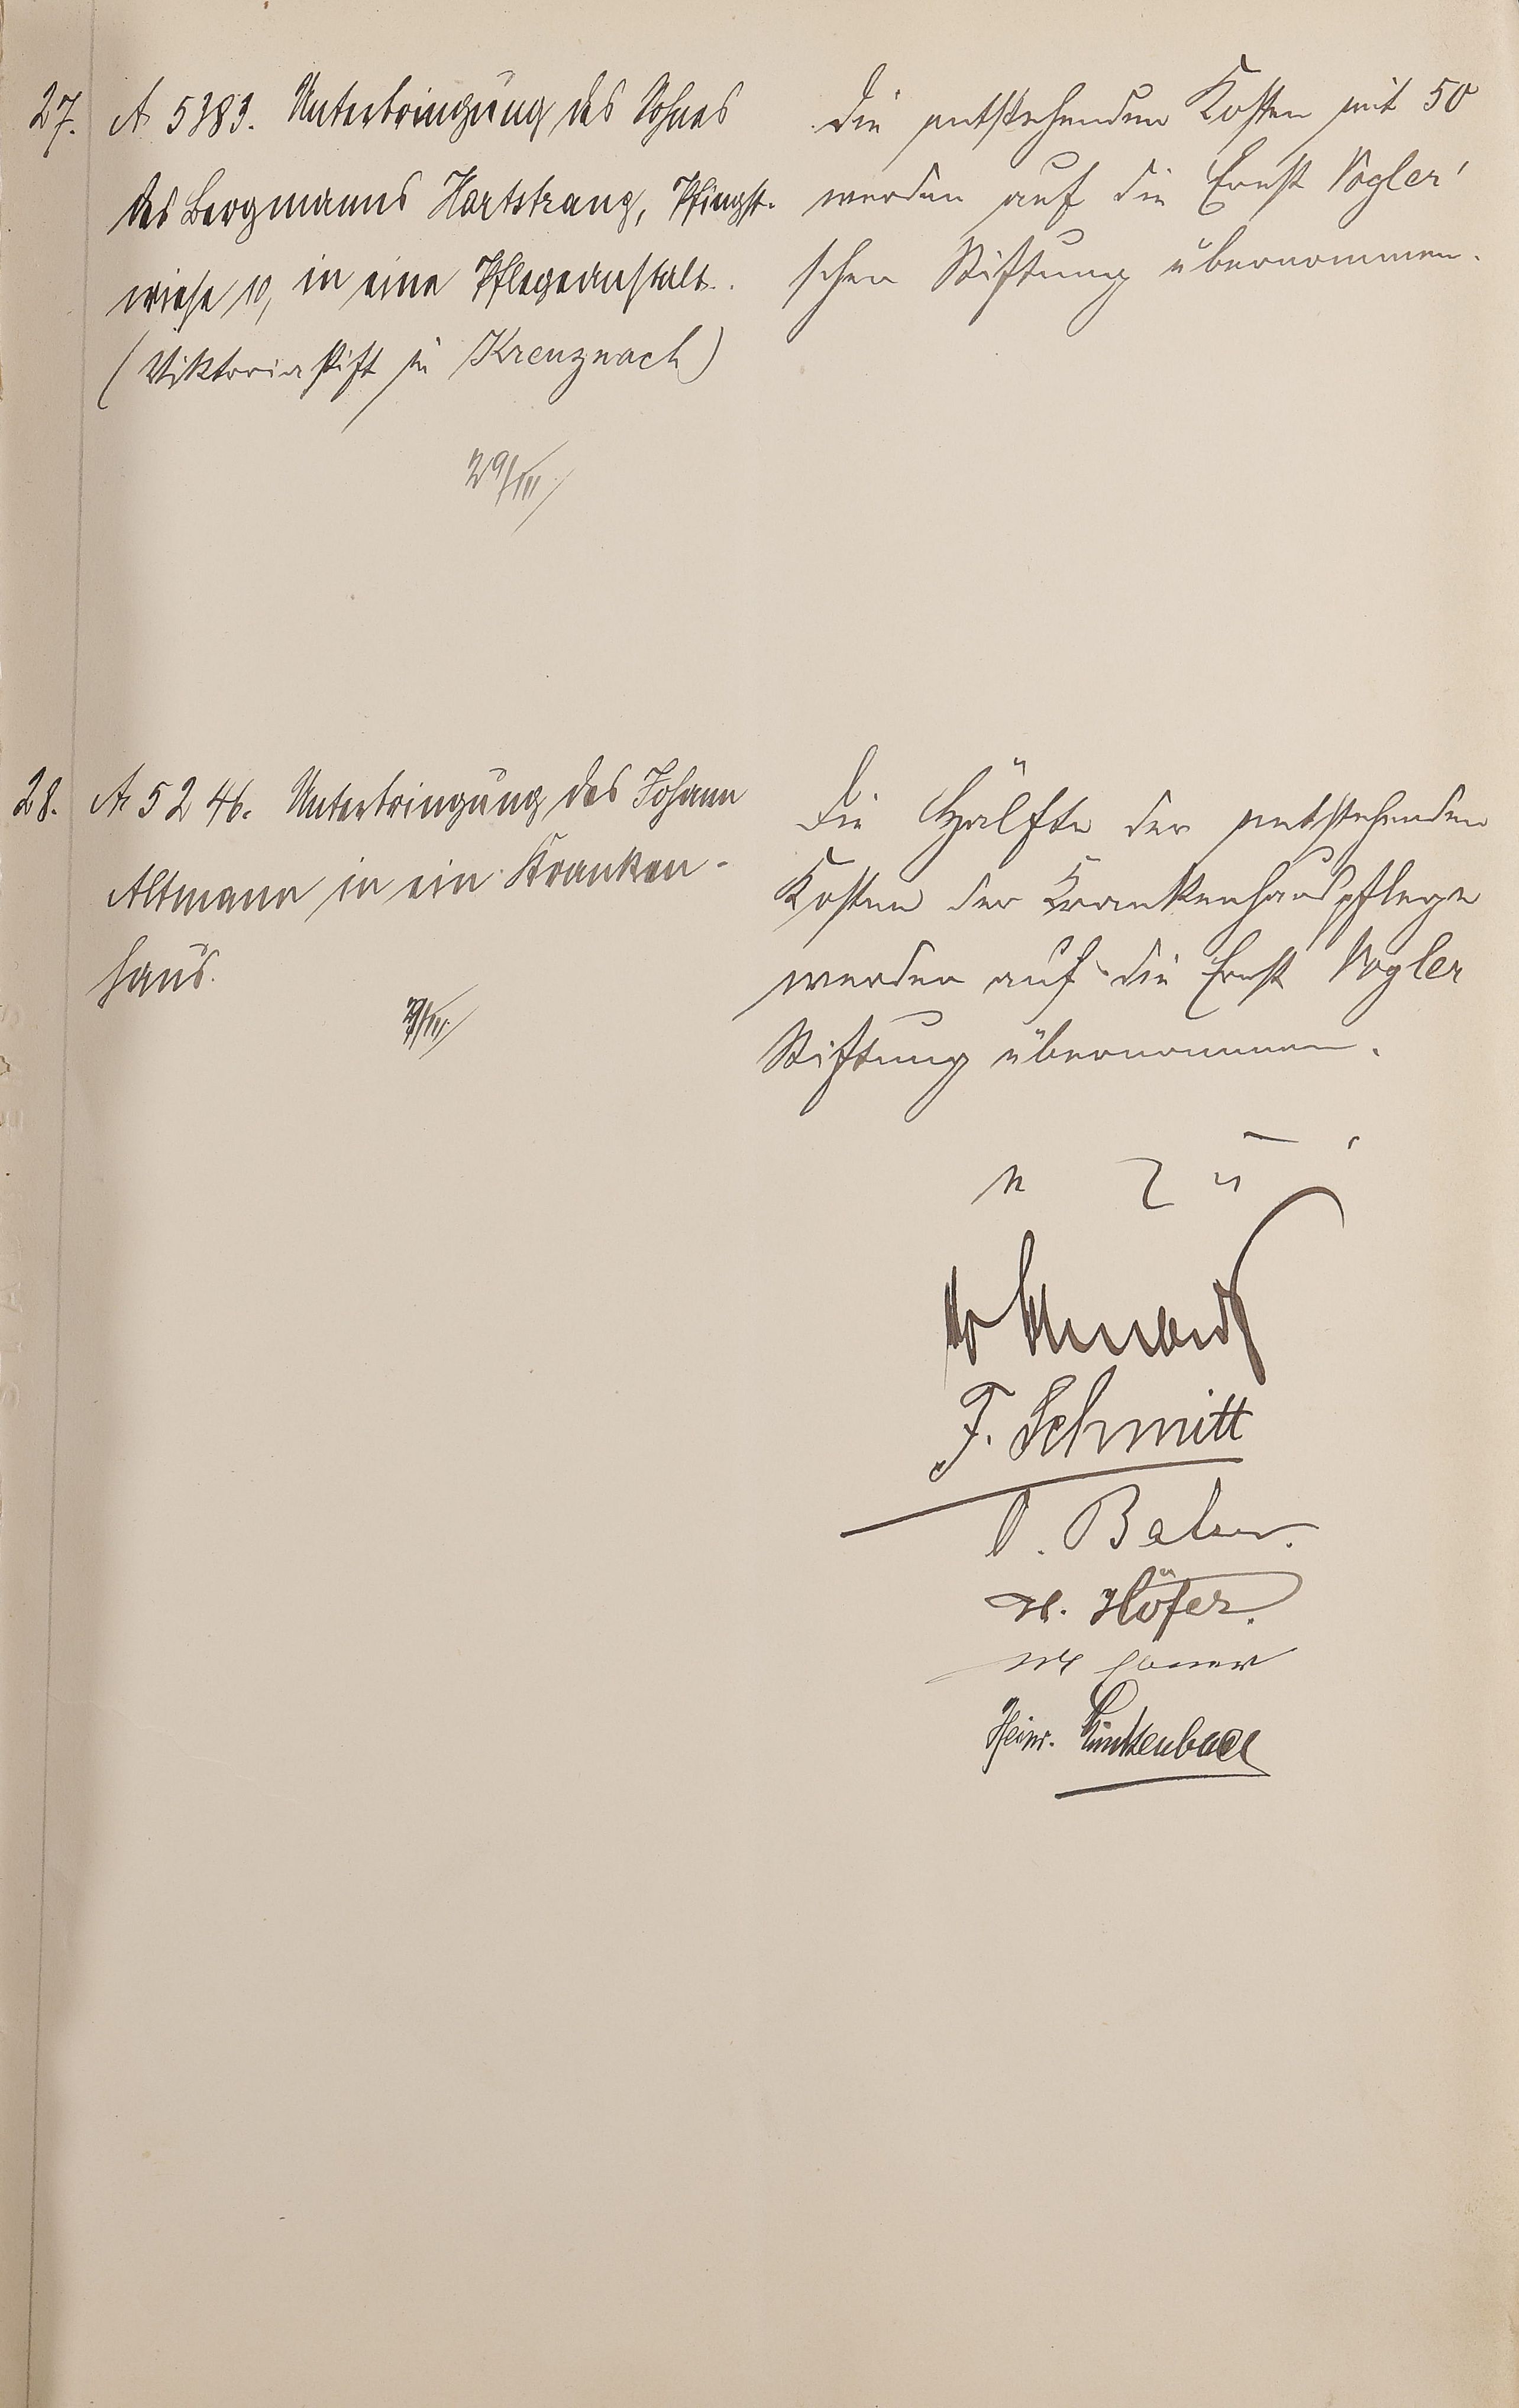 27. A 5383. Unterbringung des Sohnes
des Bergmanns Hartstrang, Pfingst-
wiese 10, in eine Pflegeanstalt.
(Viktoriastift in Kreuznach)
29/III
Die entstehenden Kosten mit 50
werden auf die Ernst Vogler'
schen Stiftung übernommen.
28. A 5246. Unterbringung des Johann
Altmann in ein Kranken-
haus.
Die Hälfte der entstehenden
Kosten der Krankenhauspflege
werden auf die Ernst Vogler
Stiftung übernommen.
F. Schmitt
H. Höfer.
Heinr.